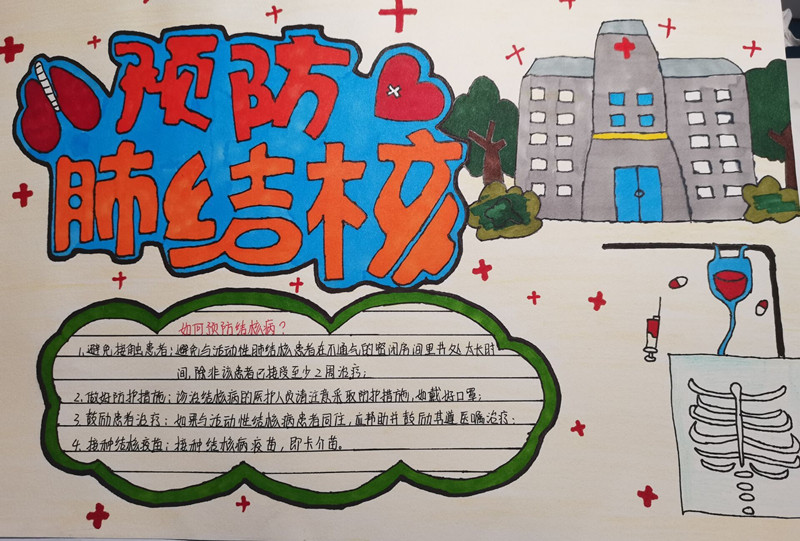 预防
肺结核
如何预防结核病？
1.避免接触患者：避免与活动性肺结核患者在不通气的密闭房间里共处太长时
间，除非该患者已接受至少2周治疗；
2.做好防护措施：诊治结核病的医护人员须注意采取防护措施，如戴好口罩；
3.鼓励患者治疗：如果与活动性结核病患者同住，应帮助并鼓励其遵医嘱治疗；
4.接种结核疫苗：接种结核病疫苗，即卡介苗。